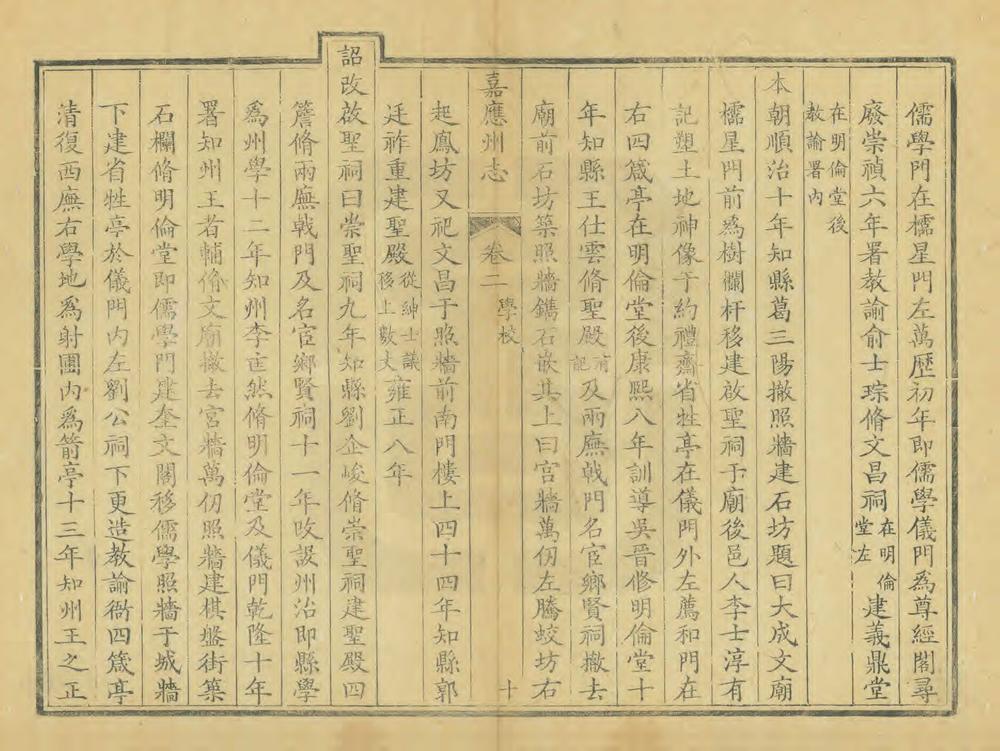 儒學門在櫺星門左萬歷初年即儒學儀門爲尊經閣尋
廢崇禎六年署教諭俞士琮脩文昌祠在明倫堂左建義鼎堂
在明倫堂後教諭署内
本朝順治十年知縣葛三陽撤照牆建石坊題曰大成文廟
櫺星門前爲樹欄杆移建啟聖祠于廟後邑人李士淳有
記塑土地神像于約禮齋省牲亭在儀門外左薦和門在
右四箴亭在明倫堂後康熙八年訓導吳晉修明倫堂十
年知縣王仕雲脩聖殿有記及兩廡戟門名宦鄉賢祠撤去
廟前石坊築照牆鐫石嵌其上曰宮牆萬仞左騰蛟坊右
嘉應州志 卷二 學校 十
起鳳坊又祀文昌于照牆前南門樓上四十四年知縣郭
廷祚重建聖殿從紳士議移上數丈雍正八年
詔改啟聖祠曰崇聖祠九年知縣劉企峻脩崇聖祠建聖殿四
簷脩兩廡戟門及名宦鄉賢祠十一年改設州治即縣學
爲州學十二年知州李匡然脩明倫堂及儀門乾隆十年
署知州王者輔脩文廟撤去宮牆萬仞照牆建棋盤街築
石欄脩明倫堂即儒學門建奎文閣移儒學照牆于城牆
下建省牲亭於儀門内左劉公祠下更造教諭衙四箴亭
清復西廡右學地爲射圃内爲箭亭十三年知州王之正